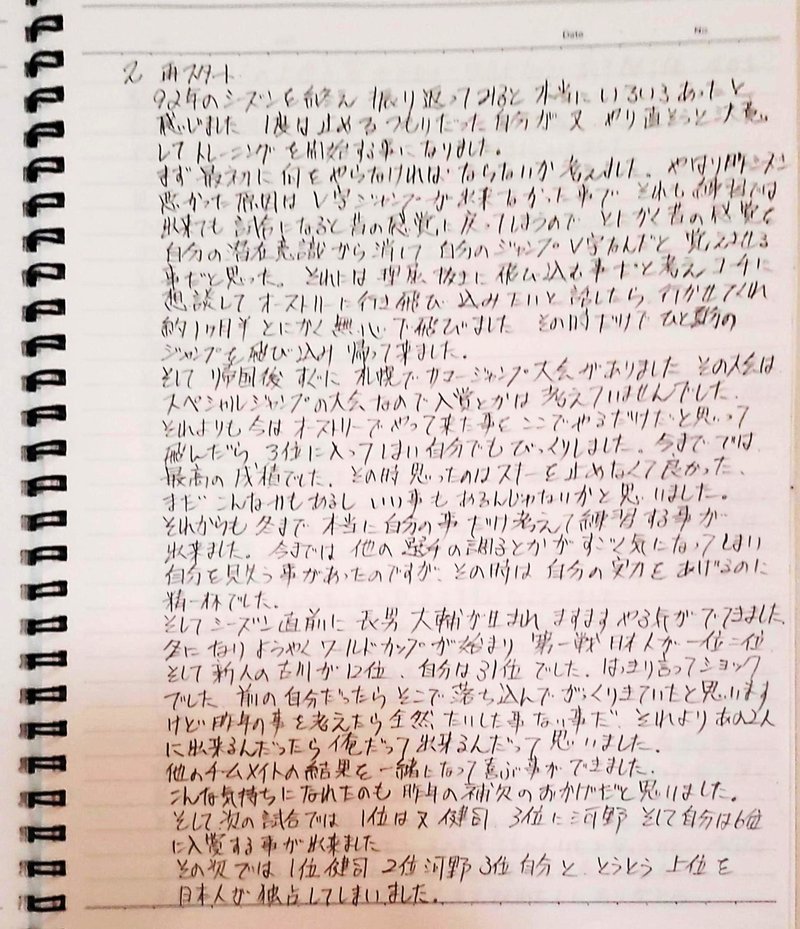 Date No
2 再スタート
92年のシーズンを終え 振り返って2みると 本当にいろいろあったと
感じました 1度は止めるつもりだった自分が又 やり直そうと決意
してトレーニングを開始する事になりました。
まず最初に何をやらなければならないか考えました。やはり昨シーズン
悪かった原因はV字ジャンプが出来なかった事で それも練習では
出来ても試合になると昔の感覚に戻ってしまうので とにかく昔の感覚を
自分の潜在意識から消して 自分のジャンプV字なんだと 覚えさせる
事だと思った。それには理屈抜きに飛び込む事だと考えコーチに
相談してオーストリーに行き飛び込みたいと話したら 行かせてくれ
約1ヶ月半とにかく無心で飛びました その時だけでひと夏分の
ジャンプを飛び込み帰って来ました。
そして帰国後すぐに札幌でサマージャンプ大会がありました その大会は
スペシャルジャンプの大会なので入賞とかは考えていませんでした。
それよりも今はオーストリーでやって来た事をここでやるだけだと思って
飛んだら 3位に入ってしまい自分でもびっくりしました。今まででは
最高の成績でした。その時思ったのはスキーを止めなくて良かった、
まだこんな力もあるし いい事もあるんじゃないかと思いました。
それからも冬まで本当に自分の事だけ考えて練習する事が
出来ました。今までは他の選手の調子とかがすごく気になってしまい
自分を見失う事があったのですが、その時は自分の実力をあげるのに
精一杯でした。
そしてシーズン直前に長男 大輔が生まれ ますますやる気がでてきました、
冬になりようやくワールドカップが始まり 第一戦 日本人が一位二位
そして新人の古川が12位、自分は31位でした。はっきり言ってショック
でした 前の自分だったらそこで落ち込んでがっくりきていたと思います
けど昨年の事を考えたら全然たいした事ない事だ、それよりあの2人
に出来るんだったら俺だって出来るんだって思いました。
他のチームメイトの結果を一緒になって喜ぶ事ができました、
こんな気持ちになれたのも昨年の補欠のおかげだと思いました。
そして次の試合では 1位は又健司 3位に河野 そして自分は6位
に入賞する事が出来ました
その次では1位健司 2位河野 3位自分と、とうとう上位を
日本人が独占してしまいました。